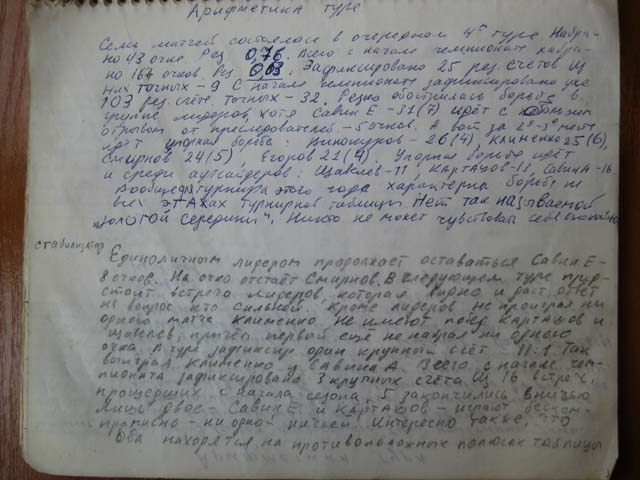 Арифметика туре
Семь матчей состоялся в очередном 4ом туре. Набра-
но 43 очка Рез. 0,76. Всего с начала чемпионата набра-
но 167 очков. Рез. Зафиксировано 25 рез. счетов Из
них точных - 9 С начала чемпионата зафиксировано уже
103 рез. счёта. Точных - 32. Резко обострилась борьба в
группе лидеров, хотя Савин Е - 31(7) идёт с
отрывом от преследователей - 5 очков. А вот за 2е-3е место
идёт упорная борьба: Винокуров - 26(4), Клименко 25(6),
Смирнов 24(5), Егоров 21(4). Упорная борьба идёт
и среди аутсайдеров: Щавелев - 11, Карташов - 13, Савин А - 16
Вообще турнира этого года характерна борьба на
всех этажах турнирной таблицы. Нет так называемой
"золотой середины". Никто не может чувствовать себя спокойно
стабилизатор
Единоличным лидером продолжает оставаться Савин Е -
8 очков. На очко отстаёт Смирнов. В следующем туре пред-
стоит встреча лидеров, которая верно и даст ответ
на вопрос кто сильней. Кроме лидеров не проиграл ни
одного матча Клименко. Не имеют побед Карташов и
Щавелев, причем первый ещё не набрал ни одного
очка. В туре зафиксир один крупный счёт 11-1. Так
выиграл Клименко у Савина А. Всего с начала чем-
пионата зафиксировано 3 крупных счёта Из 16 встреч,
прошедших с начала сезона, 5 закончились вничью
Лишь двое - Савин Е и Карташов - играют беском-
промиссно - ни одной ничьей. Интересно также, что
Оба находятся на противоположных полюсах таблицы